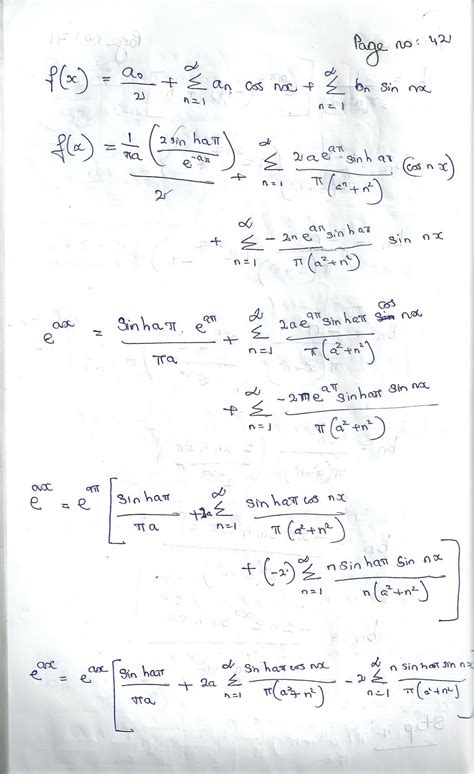 Page no: 42
f(x) = a₀/2 + ∞Σn=1 an cos nx + ∞Σn=1 bn sin nx
f(x) = 1/πa (2 sin haπ / e^-aπ) / 2 + ∞Σn=1 2ae^aπ sin haπ / π(a²+n²) (cos nx)
+ ∞Σn=1 -2n e^aπ sin haπ / π(a²+n²) sin nx
e^ax = sin haπ . e^aπ / πa + ∞Σn=1 2ae^aπ sin haπ cos nx / π(a²+n²)
+ ∞Σn=1 -2n e^aπ sin haπ sin nx / π(a²+n²)
e^ax = e^aπ [ sin haπ / πa + 2a ∞Σn=1 sin haπ cos nx / π(a²+n²)
+ (-2) ∞Σn=1 n sin haπ sin nx / n(a²+n²) ]
e^ax = e^ax [ sin haπ / πa + 2a ∞Σn=1 sin haπ cos nx / π(a²+n²) - 2 ∞Σn=1 n sin haπ sin nx / π(a²+n²) ]